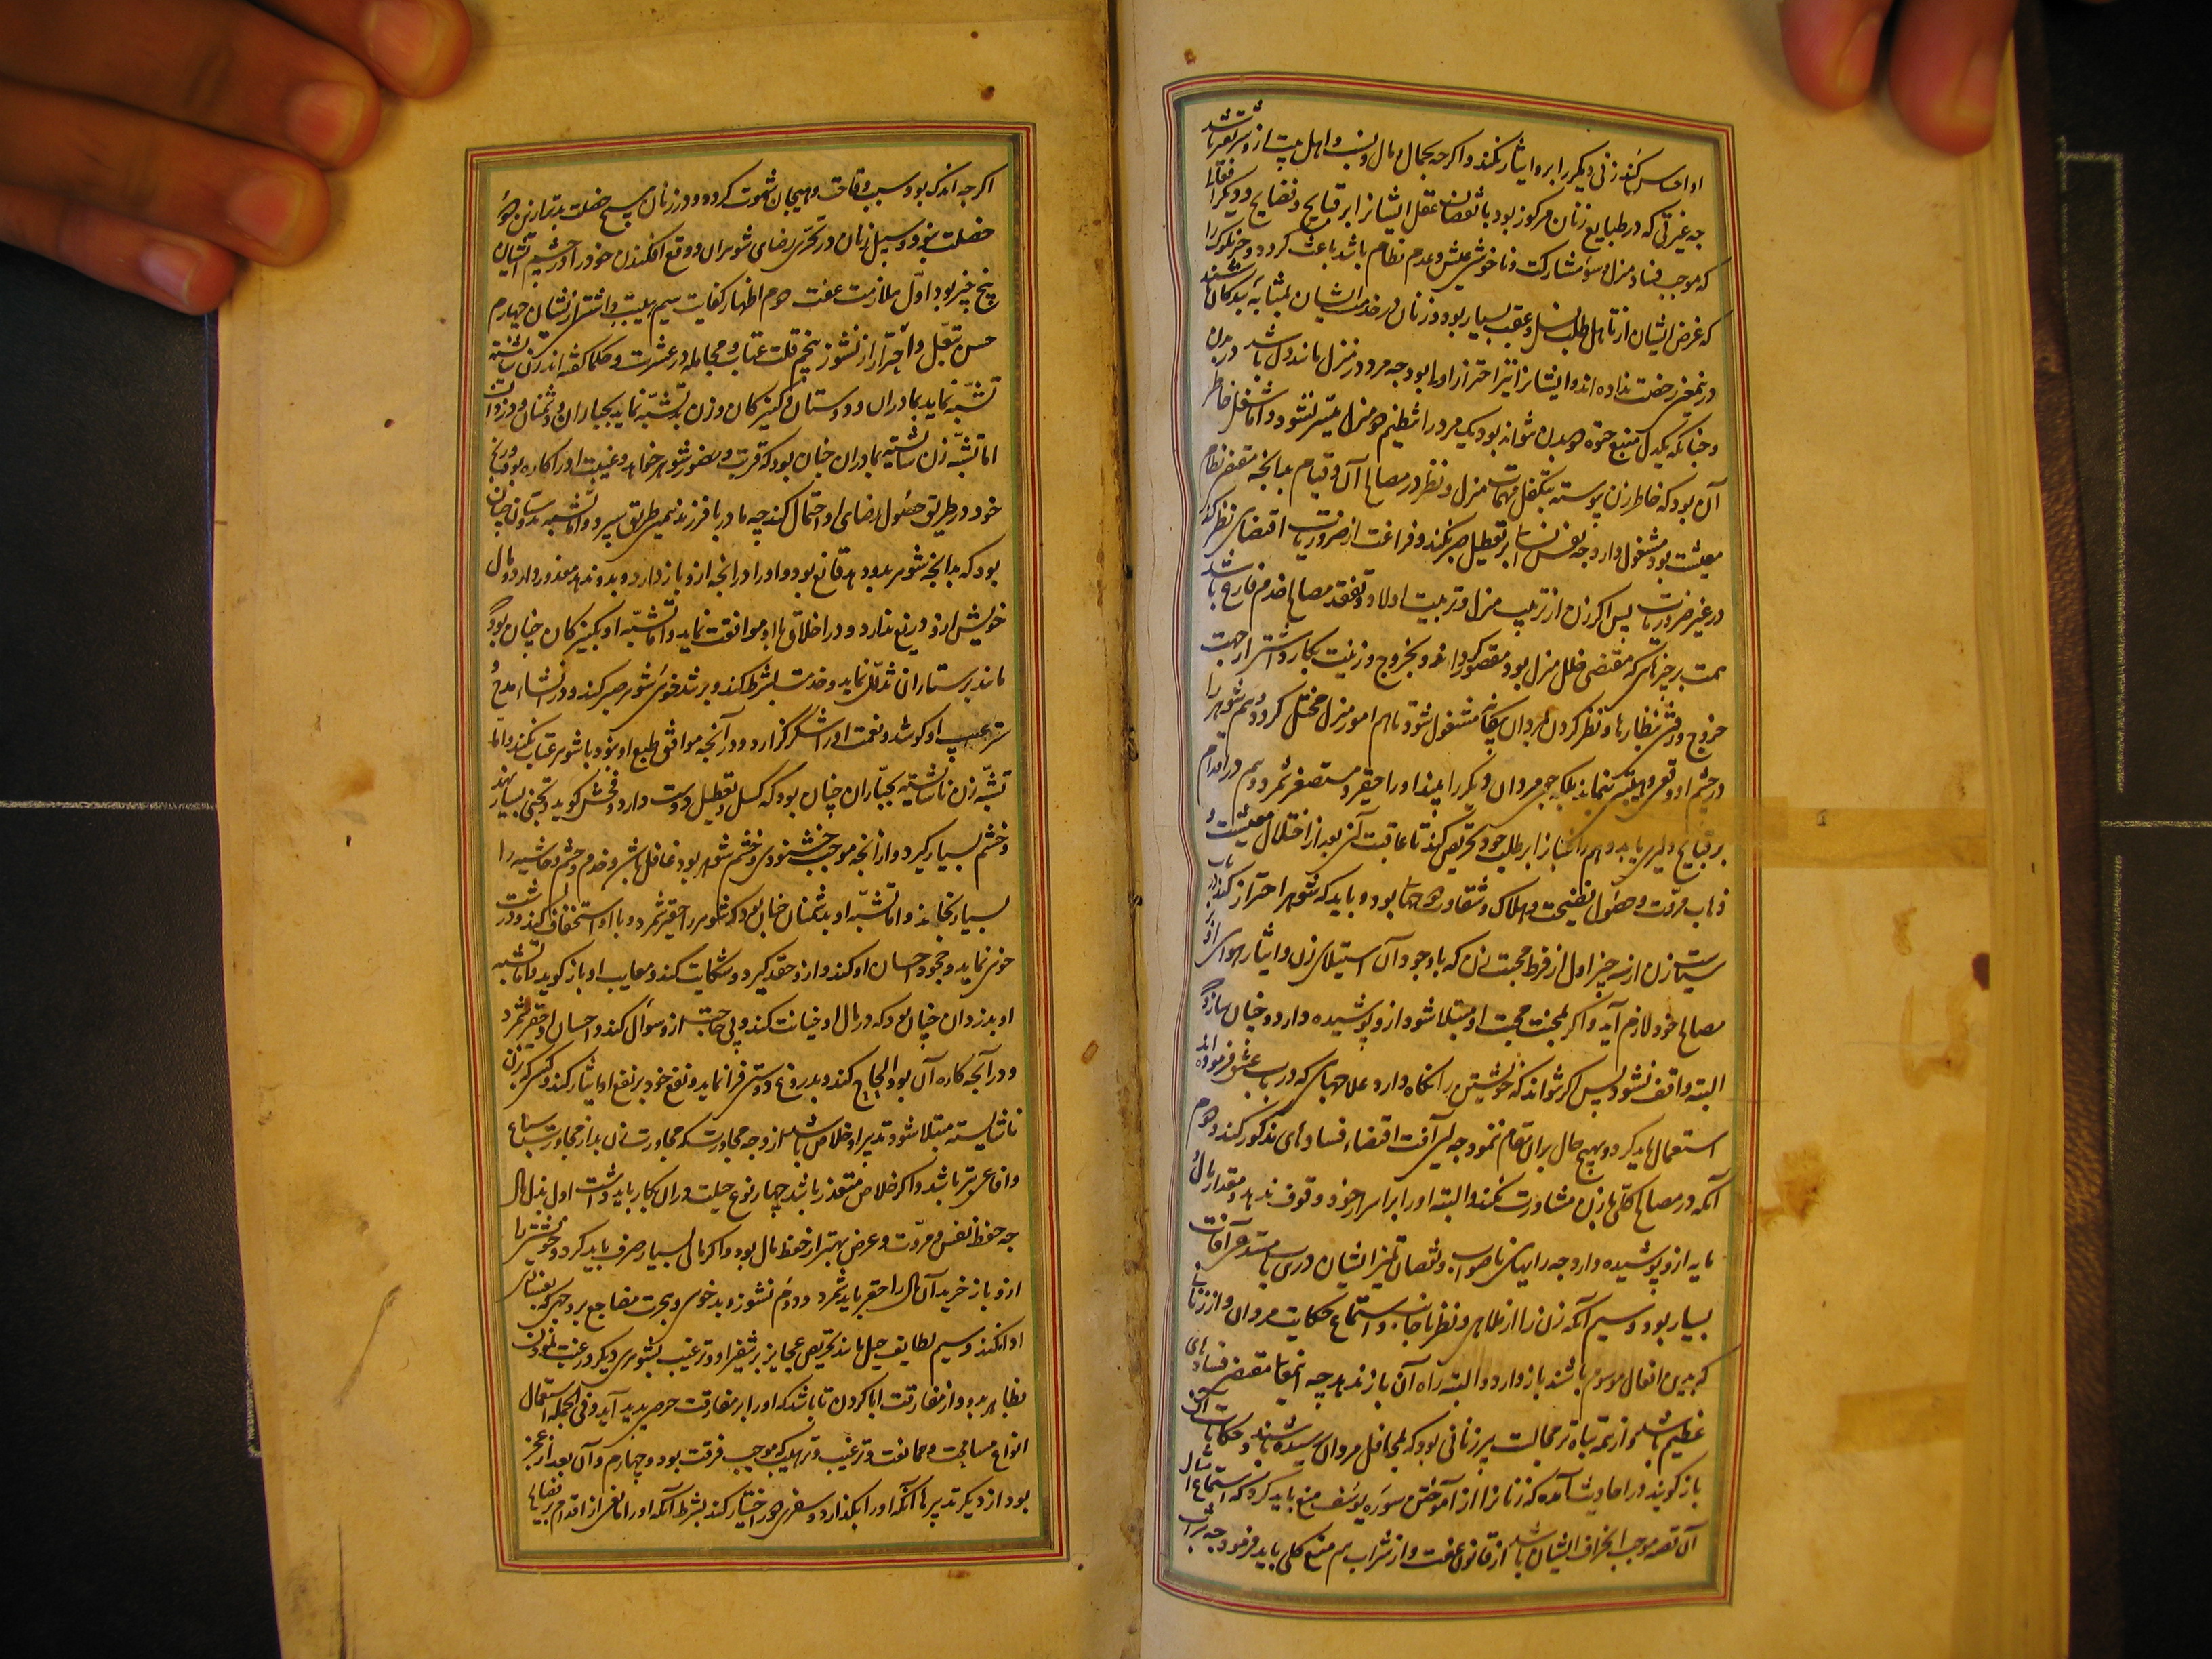 او احساس کند زنی دیگر را برو ایثار نکند و اگرچه بجمال و مال و نسب و اهل بیت ازو شریفتر باشد
چه غیرتی که در طبایع زنان مرکوز بود با نقصان عقل ایشانرا بر قبایح و فضایح و دیگر افعالها
که موجب فساد منزل و سوء مشارکت و ناخوشی عیش و عدم نظام باشد باعث گردد و جز ملوک را
که غرض ایشان از تاهل طلب نسل و عقب بسیار بود و زنان در خدمت ایشان بمثابه بندگان باشند
درینمعنی رخصت نداده اند و ایشانرا نیز احتراز اولی بود چه مرد در منزل مانند دل باشد در بدن
و چنانکه یکدل منبع حیوة دو بدن نتواند بود یک مرد را تنظیم دو منزل میسر نشود و اما شغل خاطر
آن بود که خاطر زن پیوسته بتکفل مهمات منزل و نظر در مصالح آن و قیام بدانچه مقتضی نظام
معیشت بود مشغول دارد چه نفس انسانی بر تعطیل صبر نکند و فراغت از ضروریات اقتضای نظر کند
در غیر ضروریات پس اگر زن از ترتیب منزل و تربیت اولاد و تفقد مصالح خدم فارغ باشد
همت بر چیزهایی که مقتضی خلل منزل بود مقصور گرداند و بخروج و زینت بکار داشتن از جهت
خروج و رفتن بنظارها و نظر کردن بمردان بیگانه مشغول شود تا هم امور منزل مختل گردد و هم شوهر را
در چشم او وقعی و هیبتی بنماند بلکه چون مردان دیگر را بیند او را حقیر و مستصغر شمرد و هم در اقدام
بر قبایح دلیری یابد و هم راغبانرا بر طلب خود تحریص کند تا عاقبت آن بعد از اختلال معیشت و
ذهاب مروت و حصول فضیحت و هلاک و شقاوت دو جهانی بود و باید که شوهر احتراز کند در باب
سیاست زن از سه چیز اول از فرط محبت زن که با وجود آن استیلای زن و ایثار هوای او بر
مصالح خود لازم آید و اگر بمحنت محبت او مبتلا شود ازو پوشیده دارد و چنان سازد که
البته واقف نشود پس اگر نتواند که خویشتن را نگاه دارد علاجهایی که در باب عشق فرموده اند
استعمال باید کرد و بهیچ حال بران مقام ننمود چه این آفت اقتضاء فسادهای مذکور کند و دوم
آنکه در مصالح کلی با زن مشاورت نکند و البته او را بر اسرار خود وقوف ندهد و مقدار مال و
مایه ازو پوشیده دارد چه رایهای ناصواب و نقصان تمیز ایشان درین باب مستدعی آفات
بسیار بود و سیم آنکه زن را از ملاهی و نظر باجانب و استماع حکایت مردان و از زنانی
که بدین افعال موسوم باشند باز دارد و البته راه آن باز ندهد چه این معانی مقتضی فسادهای
عظیم باشد و از همه تباه تر مجالست پیرزنانی بود که بمحافل مردان رسیده باشند و حکایات آن
باز گویند و در احادیث آمده که زنانرا از آموختن سوره یوسف منع باید کرد که استماع امثال
آن قصه موجب انحراف ایشان باشد از قانون عفت و از شراب هم منع کلی باید فرمود چه شراب
اگرچه اندک بود سبب وقاحت و هیجان شهوت گردد و در زنان هیچ خصلت بدتر ازین دو
خصلت نبود و سبیل زنان در تحری رضای شوهران و وقع افکندن خود را در چشم ایشان
پنج چیز بود اول ملازمت عفت دوم اظهار کفایت سیم هیبت داشتن از ایشان چهارم
حسن تبعل و احتراز از نشوز پنجم قلت عتاب و مجامله در عشرت و حکما گفته اند زن شایسته
تشبه نماید بمادران و دوستان و کنیزکان و زن بد تشبه نماید بجباران و دشمنان و دزدان
اما تشبه زن شایسته بمادران چنان بود که قربت و حضور شوهر خواهد و غیبت او را کاره بود و رنج
خود در طریق حصول رضای او احتمال کند چه مادر با فرزند همین طریق سپرد و اما تشبه بدوستان چنان
بود که بدانچه شوهر بدو دهد قانع بود و او را در آنچه ازو باز دارد و بدو ندهد معذور دارد و مال
خویش ازو دریغ ندارد و در اخلاق با او موافقت نماید و اما تشبه او بکنیزکان چنان بود که
مانند پرستاران تذلل نماید و خدمت بشرط کند و بر تندخویی شوهر صبر کند و در افشاء مدح و
ستر عیب او کوشد و نعمت او را شکر گزارد و در آنچه موافق طبع او نبود با شوهر عتاب نکند و اما
تشبه زن ناشایسته بجباران چنان بود که کسل و تعطیل دوست دارد و فحش گوید و تجنی بسیار نهد
و خشم بسیار گیرد و از آنچه موجب خشنودی و خشم شوهر بود غافل باشد و خدم و حشم و حاشیه را
بسیار رنجاند و اما تشبه او بدشمنان چنان بود که شوهر را حقیر شمرد و با او استخفاف کند و درشت
خویی نماید و جحود احسان او کند و ازو حقد گیرد و شکایت کند و معایب او باز گوید و اما تشبه
او بدزدان چنان بود که در مال او خیانت کند و بی حاجت ازو سوال کند و احسان او حقیر شمرد
و در آنچه کاره آن بود الحاح کند و بدروغ دوستی فرا نماید و نفع خود بر نفع او ایثار کند و کسی که بزن
ناشایسته مبتلا شود تدبیر او خلاص باشد ازو چه مجاورت زن بد از مجاورت سباع
و افاعی بتر باشد و اگر خلاص متعذر باشد چهار نوع حیلت دران بکار باید داشت اول بذل مال
چه حفظ نفس و مروت و عرض بهتر از حفظ مال بود و اگر مالی بسیار صرف باید کرد و خویشتن را
ازو باز خرید آن مال را حقیر باید شمرد و دوم نشوز و بدخویی و هجرت مضاجع بر وجهی که بفسادی
ادا نکند و سیم لطایف حیل مانند تحریص عجایز بر تنفیر او و ترغیب بشوهری دیگر و رغبت نمودن
بظاهر بدو و از مفارقت ابا کردن تا باشد که او را بر مفارقت حرصی پدید آید و فی الجمله استعمال
انواع مسامحت و ممانعت و ترغیب و ترهیب که موجب فرقت بود و چهارم و آن بعد از عجز
بود از دیگر تدبیرها آنکه او را بگذارد و سفری دور اختیار کند بشرط آنکه او را مانعی از اقدام بر فضایح